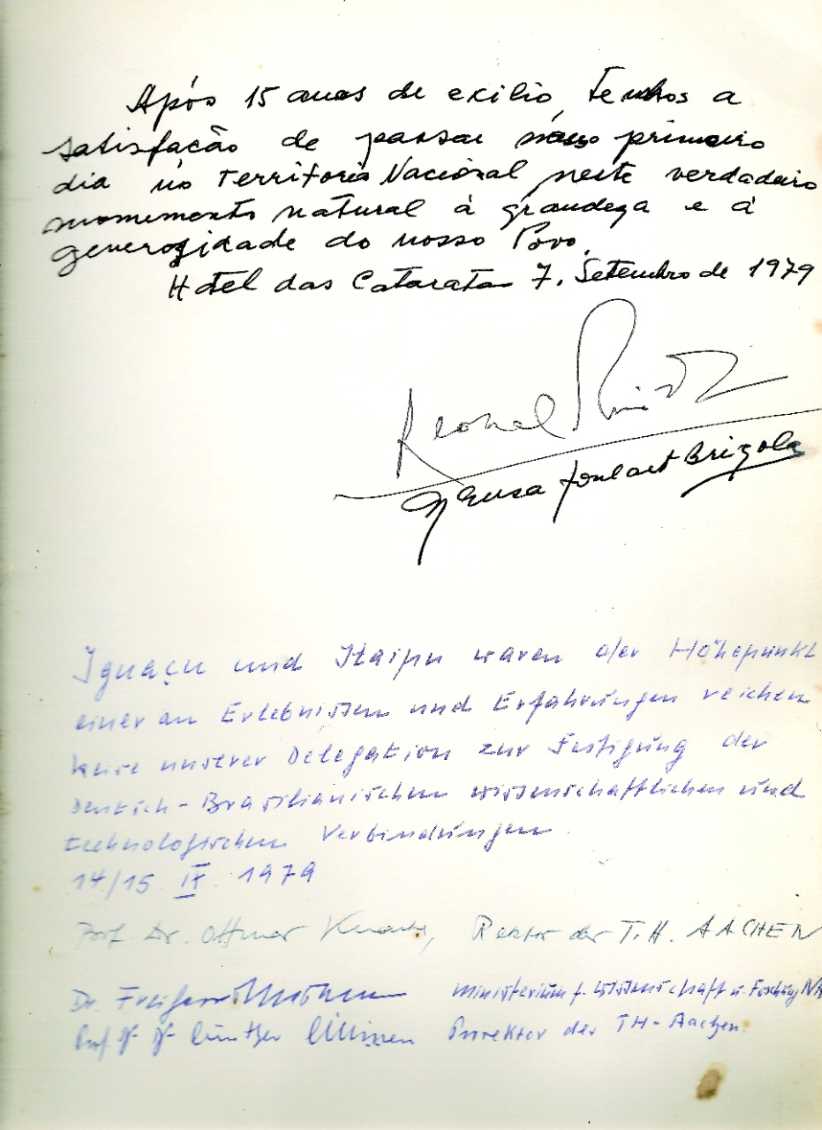 Após 15 anos de exilio, temos a
satisfação de passar nosso primeiro
dia no Territorio Nacional neste verdadeiro
momemento natural à grandeza e à
generosidade do nosso Povo.
Hotel das Cataratas 7. Setembro de 1979
Leonel Brizola
Neusa Goulart Brizola
Iguaçu und Itaipu waren der Höhepunkt
einer an Erlebnissen und Erfahrungen reichen
Reise unserer Delegation zur Festigung der
Deutsch-Brasilianischen wissenschaftlichen und
technologischen Verbindungen.
14/15 IX 1979
Prof. Dr. Ottmar Knacke, Rektor der T.H. AACHEN
Dr. Ministerium f. Wissenschaft u. Forschung
Prof. Dr. Dr. Günther Prorektor der TH-Aachen